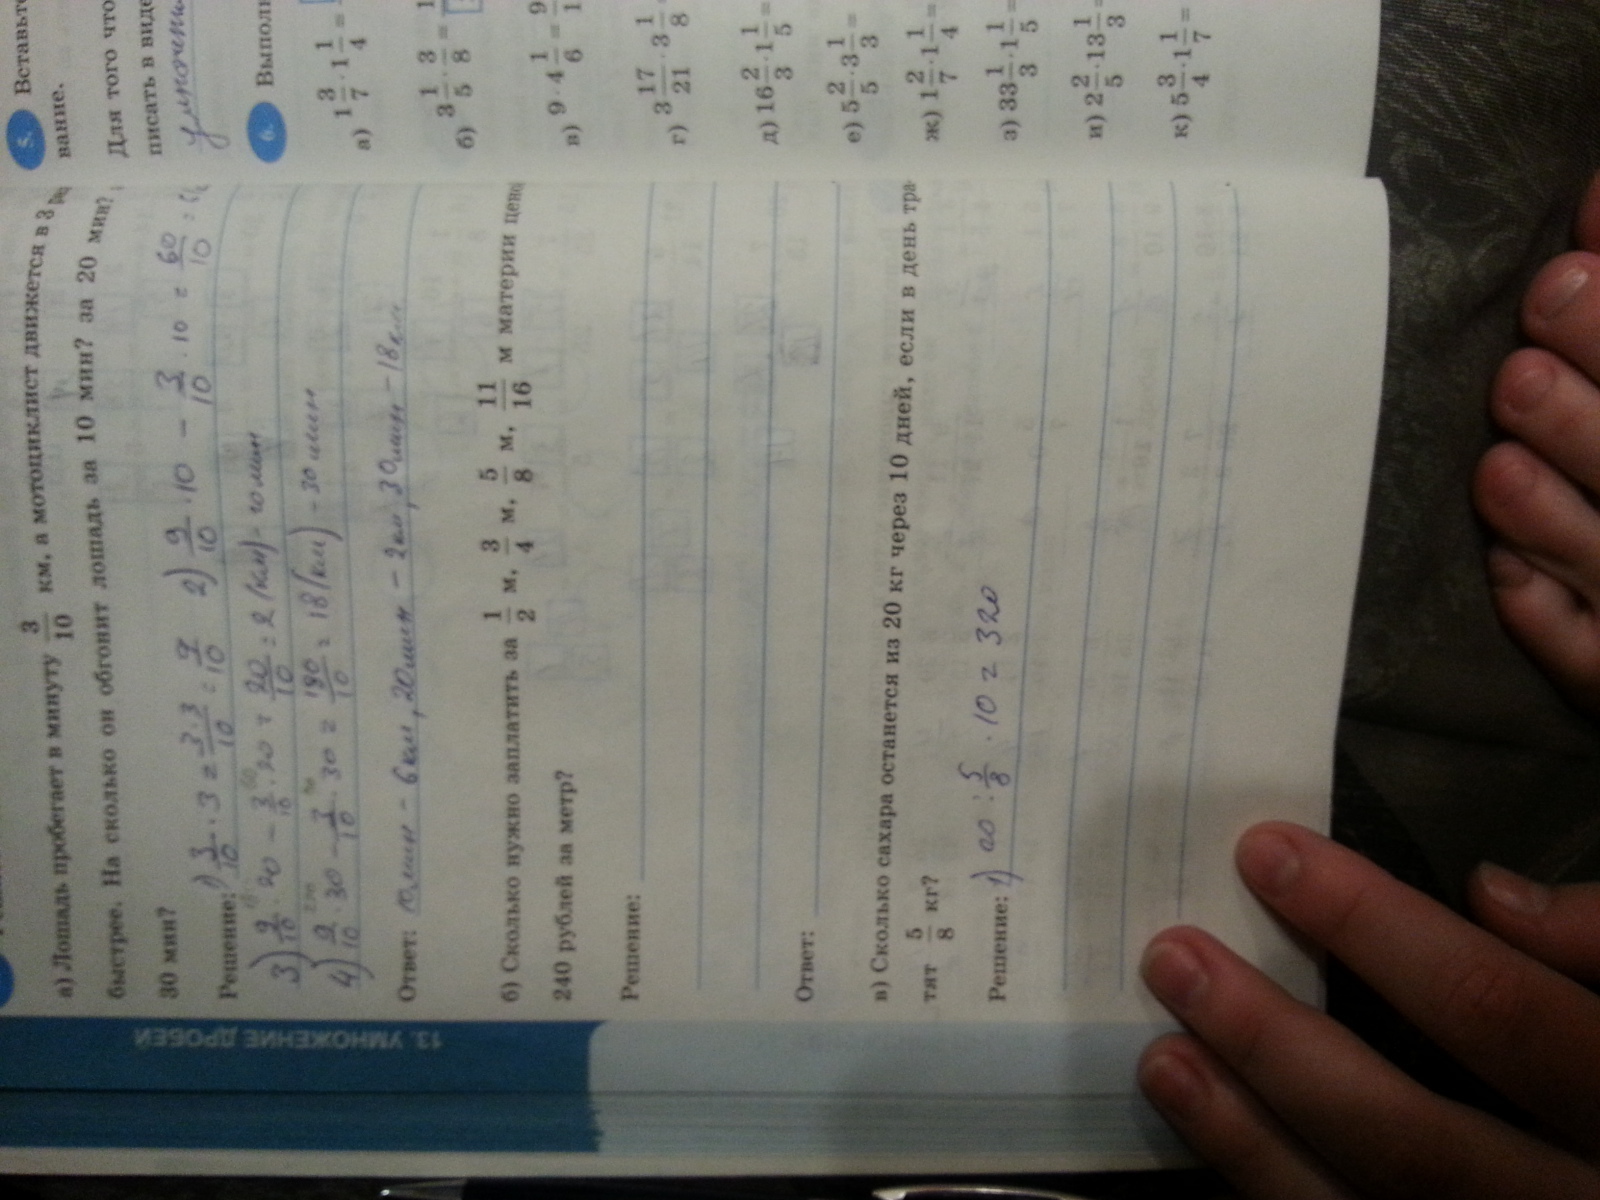 а) Лошадь пробегает в минуту 3/10 км, а мотоциклист движется в 3
быстрее. На сколько он обгонит лошадь за 10 мин? за 20 мин?
30 мин?
Решение: 1) 3/10 · 3 = 3·3/10 = 9/10 2) 9/10 · 10 − 3/10 · 10 = 60/10 =
3) 9/10 · 20 − 3/10 · 20 = 20/10 = 2 (км) - 20 мин
4) 9/10 · 30 − 3/10 · 30 = 180/10 = 18 (км) - 30 мин
Ответ: 10 мин - 6 км, 20 мин - 2 км, 30 мин - 18 км
б) Сколько нужно заплатить за 1/2 м, 3/4 м, 5/8 м, 11/16 м материи
240 рублей за метр?
Решение:
Ответ:
в) Сколько сахара останется из 20 кг через 10 дней, если в день тра-
тят 5/8 кг?
Решение: 1) 20 : 5/8 · 10 = 320
13. УМНОЖЕНИЕ ДРОБЕЙ
5. Вставьте
вание.
Для того что
писать в виде
6.
а) 1 3/7 · 1 1/4 =
б) 3 1/5 · 3/8 =
в) 9 · 4 1/6 =
г) 3 17/21 · 3 1/8 =
д) 16 2/3 · 1 1/5 =
е) 5 2/5 · 3 1/3 =
ж) 1 2/7 · 1 1/4 =
з) 33 1/3 · 1 1/5 =
и) 2 2/5 · 13 1/3 =
к) 5 3/4 · 1 1/7 =